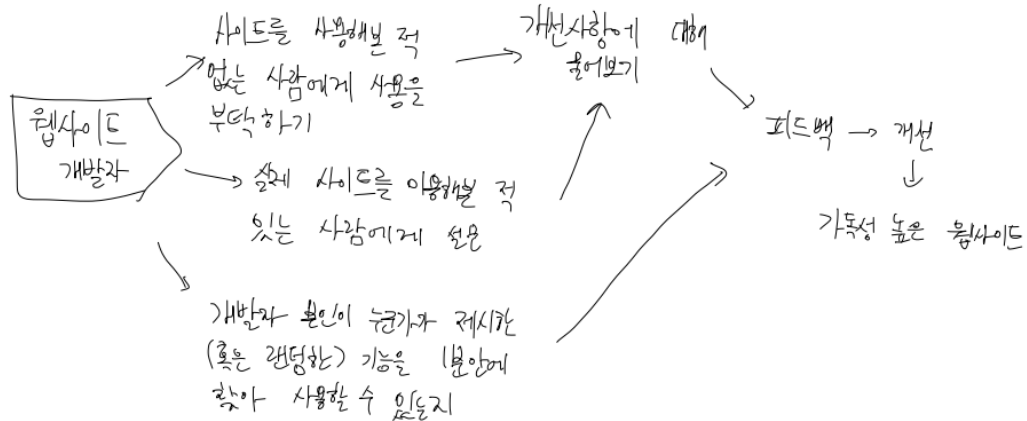 웹사이트
개발자
사이트를 사용해본 적
없는 사람에게 사용을
부탁하기
실제 사이트를 이용해본 적
있는 사람에게 설문
개발자 본인이 누군가가 제시한
(혹은 랜덤한) 기능을 1분안에
찾아 사용할 수 있는지
개선사항에 대해
물어보기
피드백 → 개선
가독성 높은 웹사이트